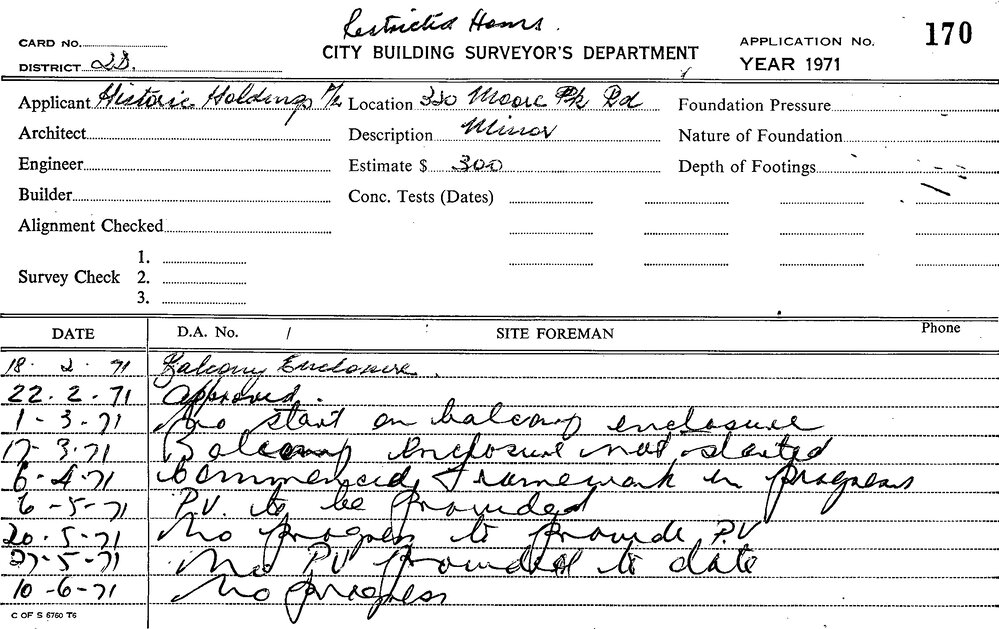 Restricted Hours.
CARD No.
CITY BUILDING SURVEYOR'S DEPARTMENT
APPLICATION No. 170
DISTRICT 2S.
YEAR 1971
Applicant Historic Holdings P/L Location 350 Moore Pk Rd Foundation Pressure
Architect Description Minor Nature of Foundation
Engineer Estimate $ 300 Depth of Footings
Builder Conc. Tests (Dates)
Alignment Checked
1.
Survey Check 2.
3.
DATE D.A. No. / SITE FOREMAN Phone
18. 2. 71 Balcony Enclosure.
22.2.71 Approved.
1-3-71 No start on balcony enclosure
17-3.71 Balcony enclosure not started
6-4-71 Commenced, Framework in progress
6-5-71 P.V. to be provided
20.5.71 No progress to provide P.V
27-5-71 No PV provided to date
10-6-71 No progress
C OF S 6760 T6